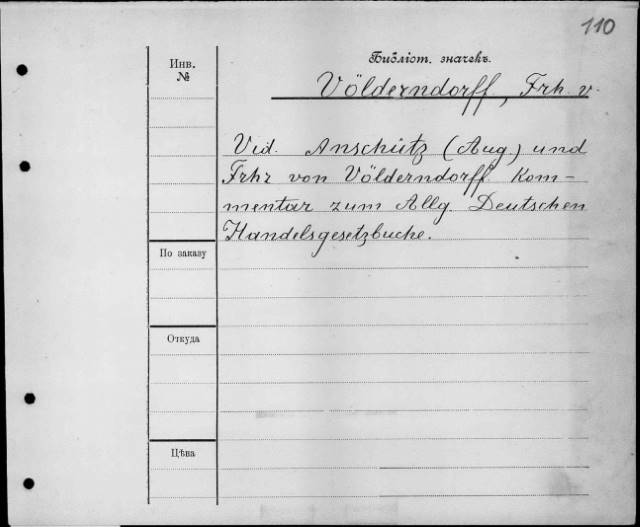 110
Библіот. значекъ.
Инв.
№
Völderndorff, Frh. v.
Vid. Anschütz (Aug.) und
Frhr von Völderndorff. Kom-
mentar zum Allg. Deutschen
Handelsgesetzbuche.
По заказу
Откуда
Цѣва